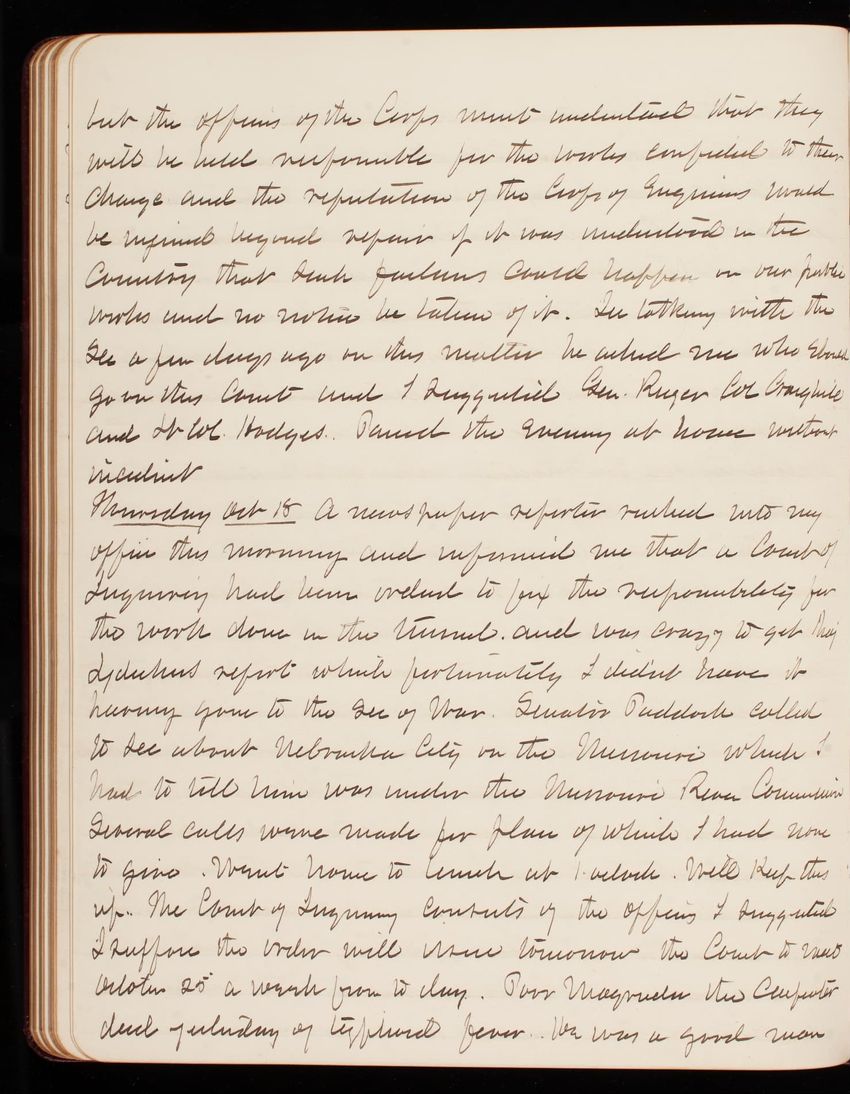 but the officers of the Corps must understand that they
will be held responsible for the works confided to their
charge and the reputation of the Corps of Engineers would
be injured beyond repair if it was understood in the
Country that such failures could happen on our public
works and no notice be taken of it. In talking with the
Sec a few days ago on this matter he asked me who should
go on this Court and I suggested Gen. Ruger Col Craighill
and Lt Col. Hodges. Passed the Evening at home without
incident
Thursday Oct 18 A newspaper reporter rushed into my
office this morning and informed me that a Court of
Inquiry had been ordered to fix the responsibility for
the work done in the tunnel. and was crazy to get Maj
Lydeckers report which fortunately I didnt have it
having gone to the Sec of War. Senator Paddock called
to see about Nebraska City on the Missouri which I
had to tell him was under the Missouri River Commission
Several calls were made for place of which I had none
to give. Went home to lunch at 1 oclock. Will Keep this
up. The Court of Inquiry consists of the officers I suggested
I suppose the order will issue tomorrow the Court to meet
October 25 a week from to day. Poor Magruder the Carpenter
died yesterday of typhoid fever. He was a good man